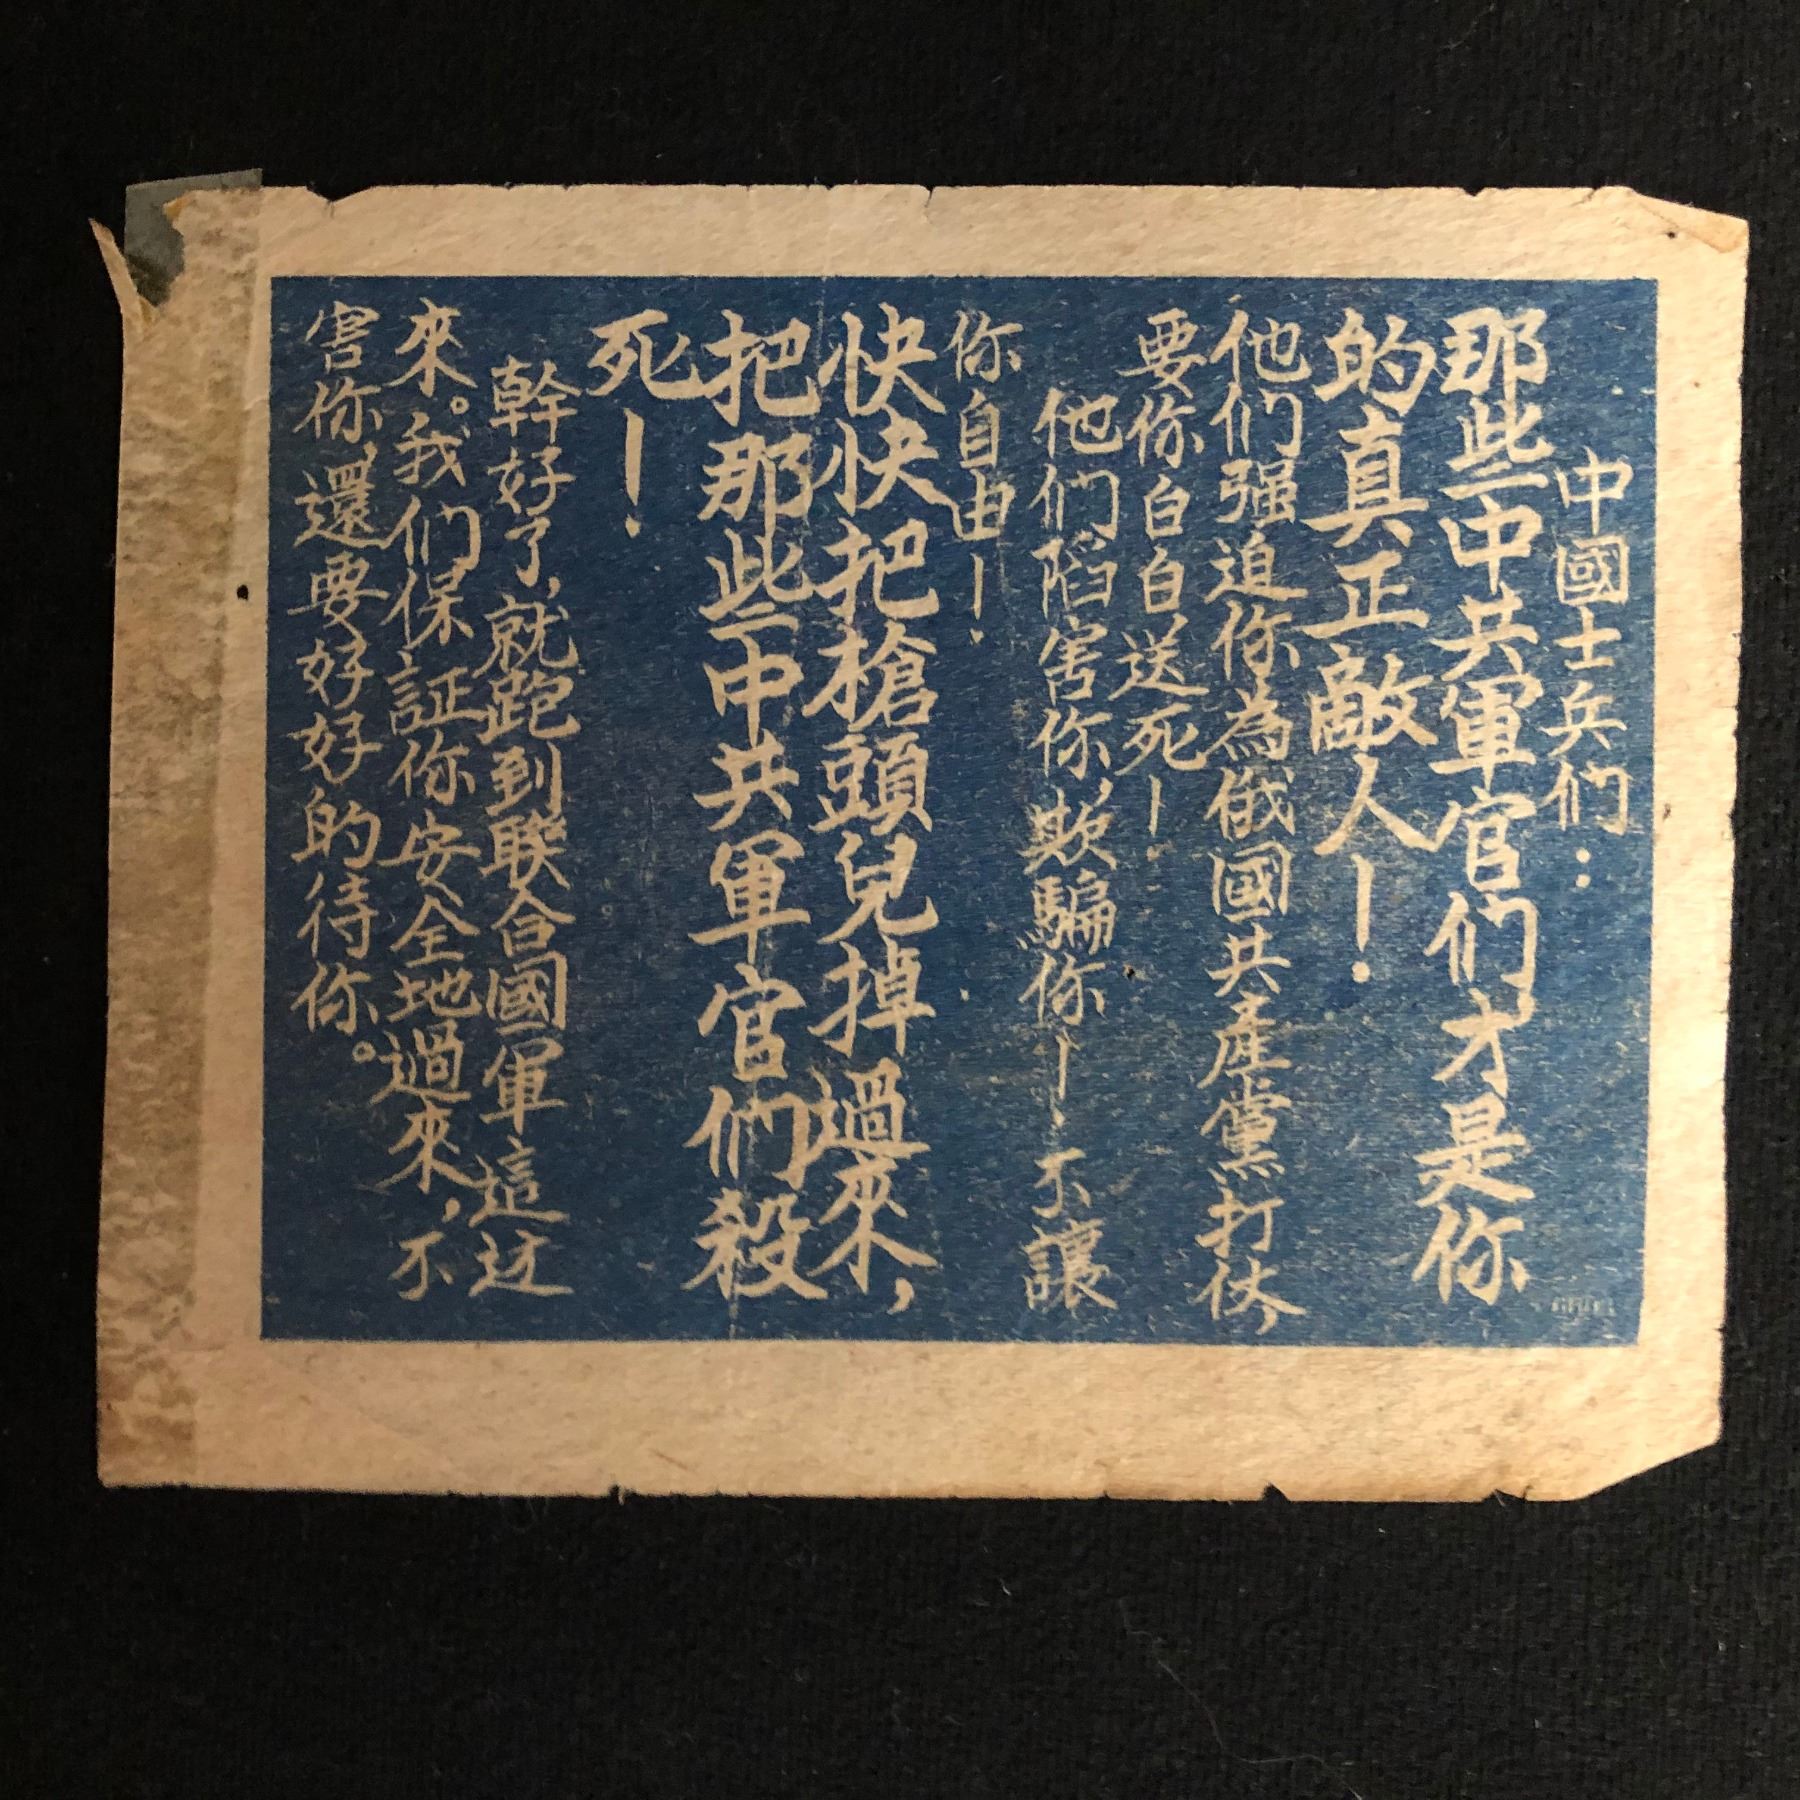 中國士兵们：
那些中共軍官们才是你
的真正敵人！
他们强迫你為俄國共產黨打仗，
要你白白送死！
他们陷害你，欺騙你！不讓
你自由！
快快把槍頭兒掉過來，
把那些中共軍官们殺
死！
幹好了，就跑到联合國軍這边
來。我们保証你安全地過來，不
害你，還要好好的待你。